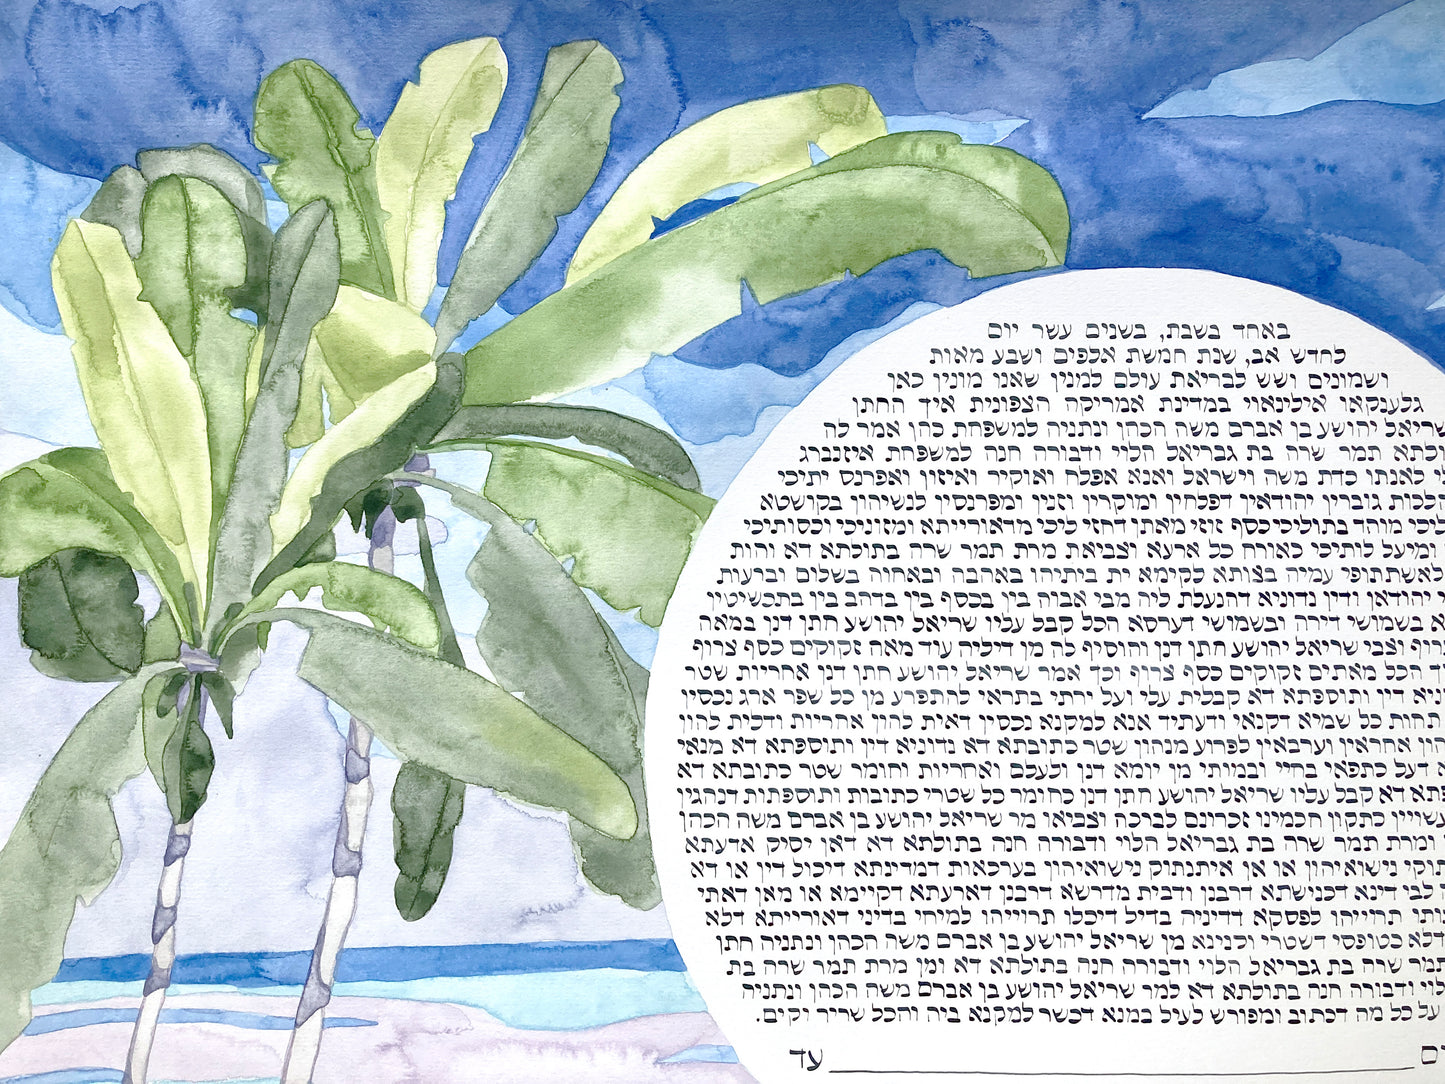 באחד בשבת, בשנים עשר יום
לחדש אב, שנת חמשת אלפים ושבע מאות
ושמונים ושש לבריאת עולם למנין שאנו מונין כאן
גלענקאו אילינאוי במדינת אמריקה הצפונית איך החתן
שריאל יהושע בן אברם משה הכהן ונתניה למשפחת כהן אמר לה
תמר שרה בת גבריאל הלוי ודבורה חנה למשפחת איזנברג
לאנתו כדת משה וישראל ואנא אפלח ואוקיר ואיזון ואפרנס יתיכי
גוברין יהודאין דפלחין ומוקרין וזנין ומפרנסין לנשיהון בקושטא
מוהר בתוליכי כסף זוזי מאתן דחזי ליכי מדאורייתא ומזוניכי וכסותיכי
ומיעל לותיכי כאורח כל ארעא וצביאת מרת תמר שרה בתולתא דא והות
לאשתתופי עמיה בצותא לקימא ית ביתיהו באהבה ובאחוה בשלום וברעות
יהודאן ודין נדוניא דהנעלת ליה מבי אבוה בין בכסף בין בדהב בין בתכשיטין
בשמושי דירה ובשמושי דערסא הכל קבל עליו שריאל יהושע חתן דנן במאה
וצבי שריאל יהושע חתן דנן והוסיף לה מן דיליה עוד מאה זקוקים כסף צרוף
הכל מאתים זקוקים כסף צרוף וכך אמר שריאל יהושע חתן דנן אחריות שטר
דין ותוספתא דא קבלית עלי ועל ירתי בתראי להתפרע מן כל שפר ארג נכסין
תחות כל שמיא דקנאי ודעתיד אנא למקנא נכסין דאית להון אחריות ודלית להון
אחראין וערבאין לפרוע מנהון שטר כתובתא דא נדוניא דין ותוספתא דא מנאי
דעל כתפאי בחיי ובמותי מן יומא דנן ולעלם ואחריות וחומר שטר כתובתא דא
דא קבל עליו שריאל יהושע חתן דנן כחומר כל שטרי כתובות ותוספתות דנהגין
כתקון חכמינו זכרונם לברכה וצביאו מר שריאל יהושע בן אברם משה הכהן
ומרת תמר שרה בת גבריאל הלוי ודבורה חנה בתולתא דא דאן יסיק אדעתא
נישואיהון או אן איתנתוק נישואיהון בערכאות דמדינתא דיכול דין או דא
לבי דינא דכנישתא דרבנן ודבית מדרשא דרבנן דארעתא דקיימא או מאן דאתי
תרוייהו לפסקא דדיניה בדיל דיכלו תרוייהו למיחי בדיני דאורייתא דלא
כטופסי דשטרי וקנינא מן שריאל יהושע בן אברם משה הכהן ונתניה חתן
תמר שרה בת גבריאל הלוי ודבורה חנה בתולתא דא ומן מרת תמר שרה בת
ודבורה חנה בתולתא דא למר שריאל יהושע בן אברם משה הכהן ונתניה
על כל מה דכתוב ומפורש לעיל במנא דכשר למקנא ביה והכל שריר וקים.
עד